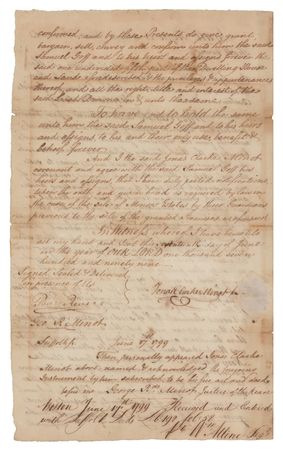 confirmed and by these Presents do give, grant,
bargain, sell, convey and confirm unto him the said
Samuel Goff and to his heirs and assigns forever the
said one undivided of the Dwelling House
and Lands aforedescribed & the privileges & appurtenances
thereof, and all the right, title and interest of the
said unto the same
To have and to hold the same
unto him the said Samuel Goff and to his heirs
and assigns to his and their only use benefit &
behoof forever
And I the said Jonas Clarke Minot do
covenant and agree with the said Samuel Goff his
heirs and assigns that
upon the oath and bond as required by law in
the case of the sale of Minors Estates by their Guardians
previous to the sale of the granted Premises as aforesaid
In Witness whereof I have hereunto
set my hand and Seal this seventeenth day of June
in the year of OUR LORD one thousand seven
hundred and ninety nine
Signed Sealed & Delivered
in presence of Us
Jonas Clarke Minot
Geo R Minot
Suffolk June 17th 1799
Then personally appeared Jonas Clarke
Minot above named & acknowledged the foregoing
Instrument by him subscribed to be his free act and deed
before Geo Rds Minot Justice of the Peace
Boston June 17th 1799 Received and Entered
with Suffolk Deeds Lib 192 fol 50
Wm Alline Regr